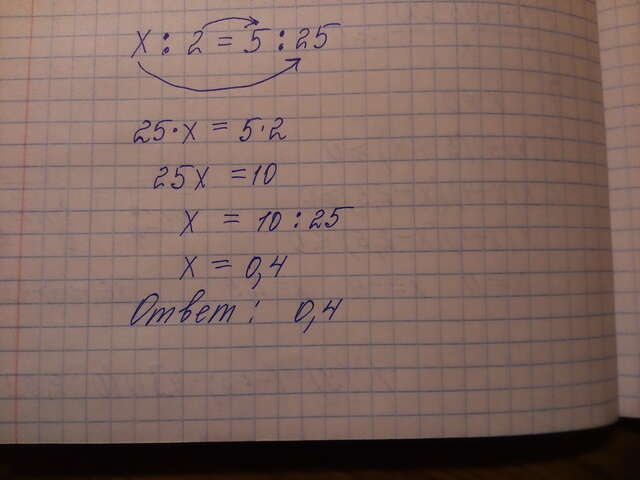 x : 2 = 5 : 25
25·x = 5·2
25x = 10
x = 10 : 25
x = 0,4
Ответ: 0,4